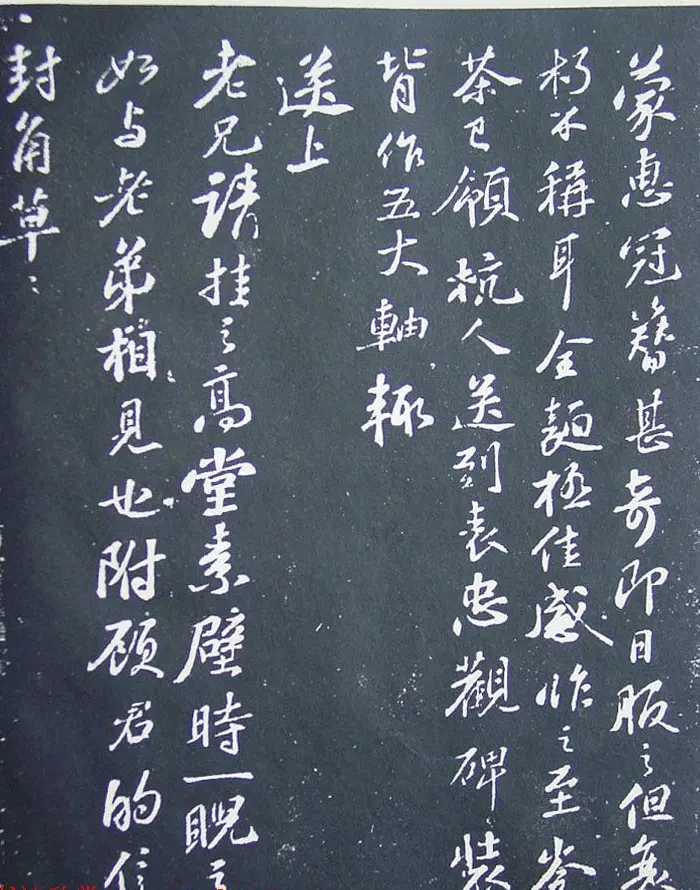 蒙惠冠簪甚奇即日服之但衰
朽不稱耳全麵極佳感怍之至
茶已領杭人送到表忠觀碑裝
背作五大軸輒
送上
老兄請挂之高堂素壁時一睨之
如与老弟相見也附顾君的信
封角草〻